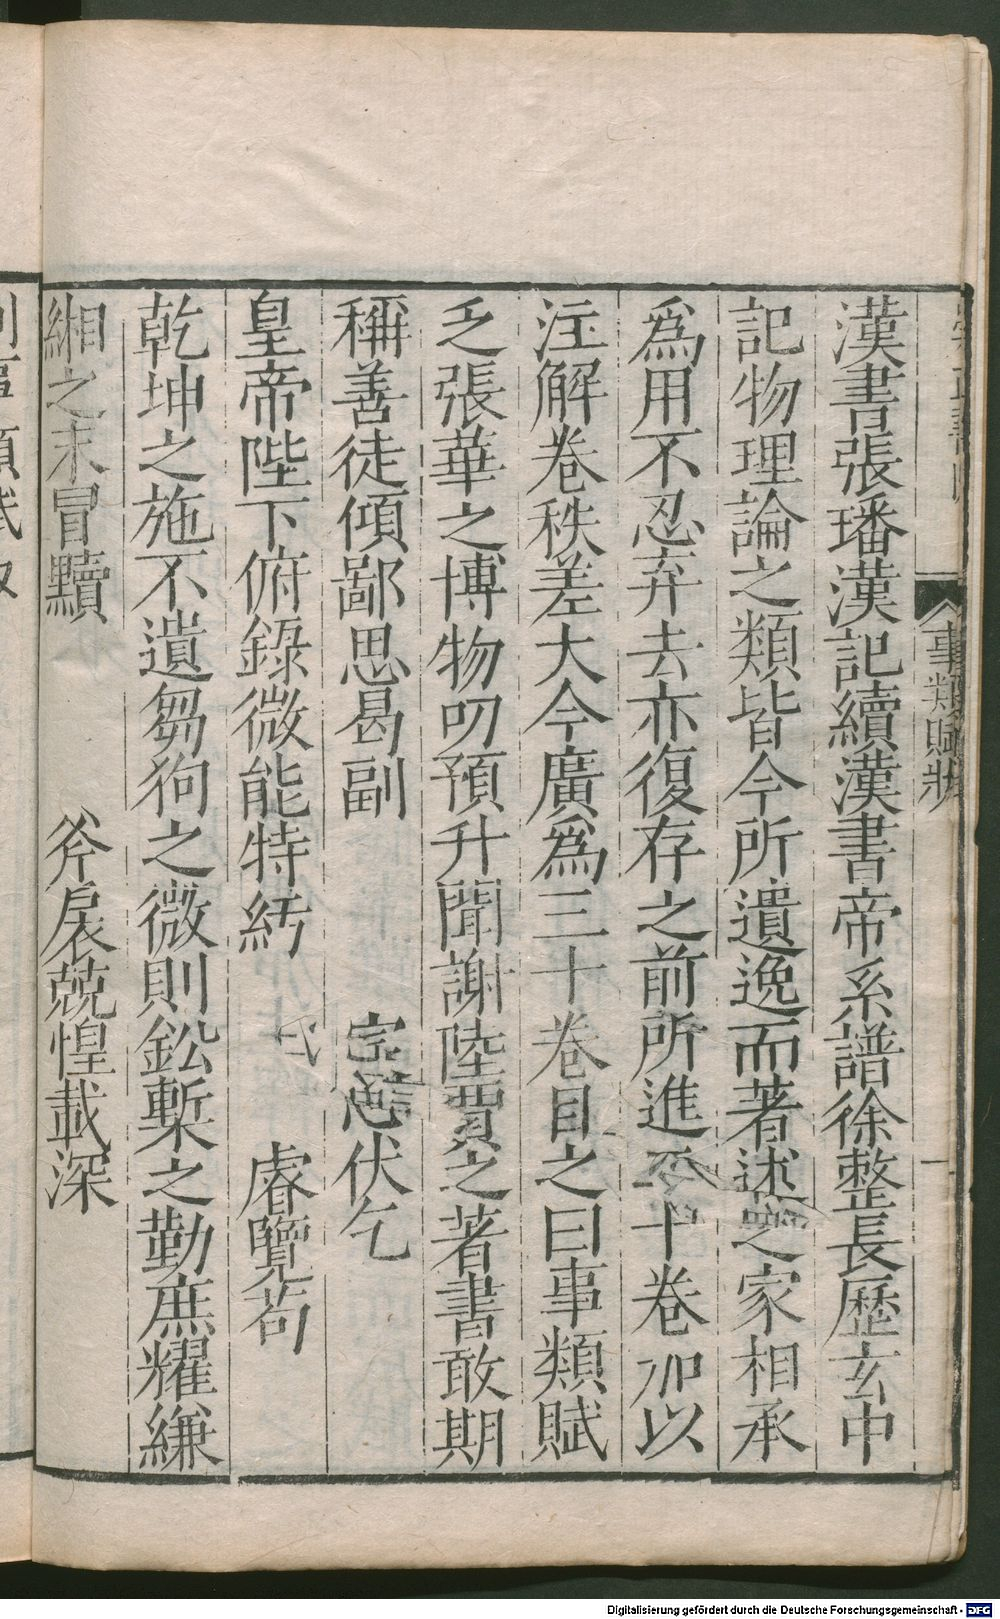 事類賦狀
漢書張璠漢記續漢書帝系譜徐整長歷玄中
記物理論之類皆今所遺逸而著述之家相承
爲用不忍弃去亦復存之前所進二十卷加以
注解卷秩差大今廣爲三十卷目之曰事類賦
乏張華之博物叨預升聞謝陸賈之著書敢期
稱善徒傾鄙思曷副 宸慈伏乞
皇帝陛下俯錄微能特紆 睿覽苟
乾坤之施不遺芻狗之微則鈆槧之勤庶耀縑
緗之末冒黷 斧扆兢惶載深
Digitalisierung gefördert durch die Deutsche Forschungsgemeinschaft - DFG